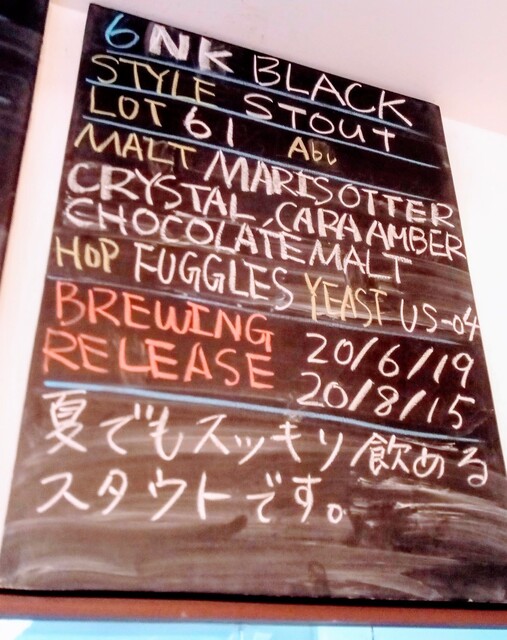 6 NK BLACK
STYLE STOUT
LOT 61 Abv
MALT MARIS OTTER
CRYSTAL, CARA AMBER
CHOCOLATE MALT
HOP FUGGLES YEAST US-04
BREWING 20/6/19
RELEASE 20/8/15
夏でもスッキリ飲める
スタウトです。